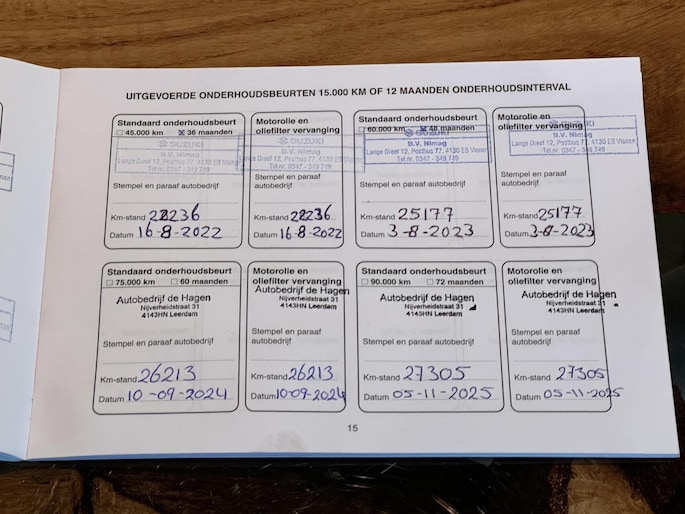 UITGEVOERDE ONDERHOUDSBEURTEN 15.000 KM OF 12 MAANDEN ONDERHOUDSINTERVAL
Standaard onderhoudsbeurt
45.000 km 36 maanden
SUZUKI
B.V. Nimag
Lange Dreef 12, Postbus 77, 4130 EB Vianen
Tel.nr. 0347 - 349 749
Stempel en paraaf autobedrijf
Km-stand 22236
Datum 16-8-2022
Motorolie en
oliefilter vervanging
SUZUKI
B.V. Nimag
Lange Dreef 12, Postbus 77, 4130 EB Vianen
Tel.nr. 0347 - 349 749
Stempel en paraaf
autobedrijf
Km-stand 22236
Datum 16-8-2022
Standaard onderhoudsbeurt
60.000 km 48 maanden
SUZUKI
B.V. Nimag
Lange Dreef 12, Postbus 77, 4130 EB Vianen
Tel.nr. 0347 - 349 749
Stempel en paraaf autobedrijf
Km-stand 25177
Datum 3-8-2023
Motorolie en
oliefilter vervanging
SUZUKI
B.V. Nimag
Lange Dreef 12, Postbus 77, 4130 EB Vianen
Tel.nr. 0347 - 349 749
Stempel en paraaf
autobedrijf
Km-stand 25177
Datum 3-8-2023
Standaard onderhoudsbeurt
75.000 km 60 maanden
Autobedrijf de Hagen
Nijverheidstraat 31
4143HN Leerdam
Stempel en paraaf autobedrijf
Km-stand 26213
Datum 10-09-2024
Motorolie en
oliefilter vervanging
Autobedrijf de Hagen
Nijverheidstraat 31
4143HN Leerdam
Stempel en paraaf
autobedrijf
Km-stand 26213
Datum 10-09-2024
Standaard onderhoudsbeurt
90.000 km 72 maanden
Autobedrijf de Hagen
Nijverheidstraat 31
4143HN Leerdam
Stempel en paraaf autobedrijf
Km-stand 27305
Datum 05-11-2025
Motorolie en
oliefilter vervanging
Autobedrijf de Hagen
Nijverheidstraat 31
4143HN Leerdam
Stempel en paraaf
autobedrijf
Km-stand 27305
Datum 05-11-2025
15